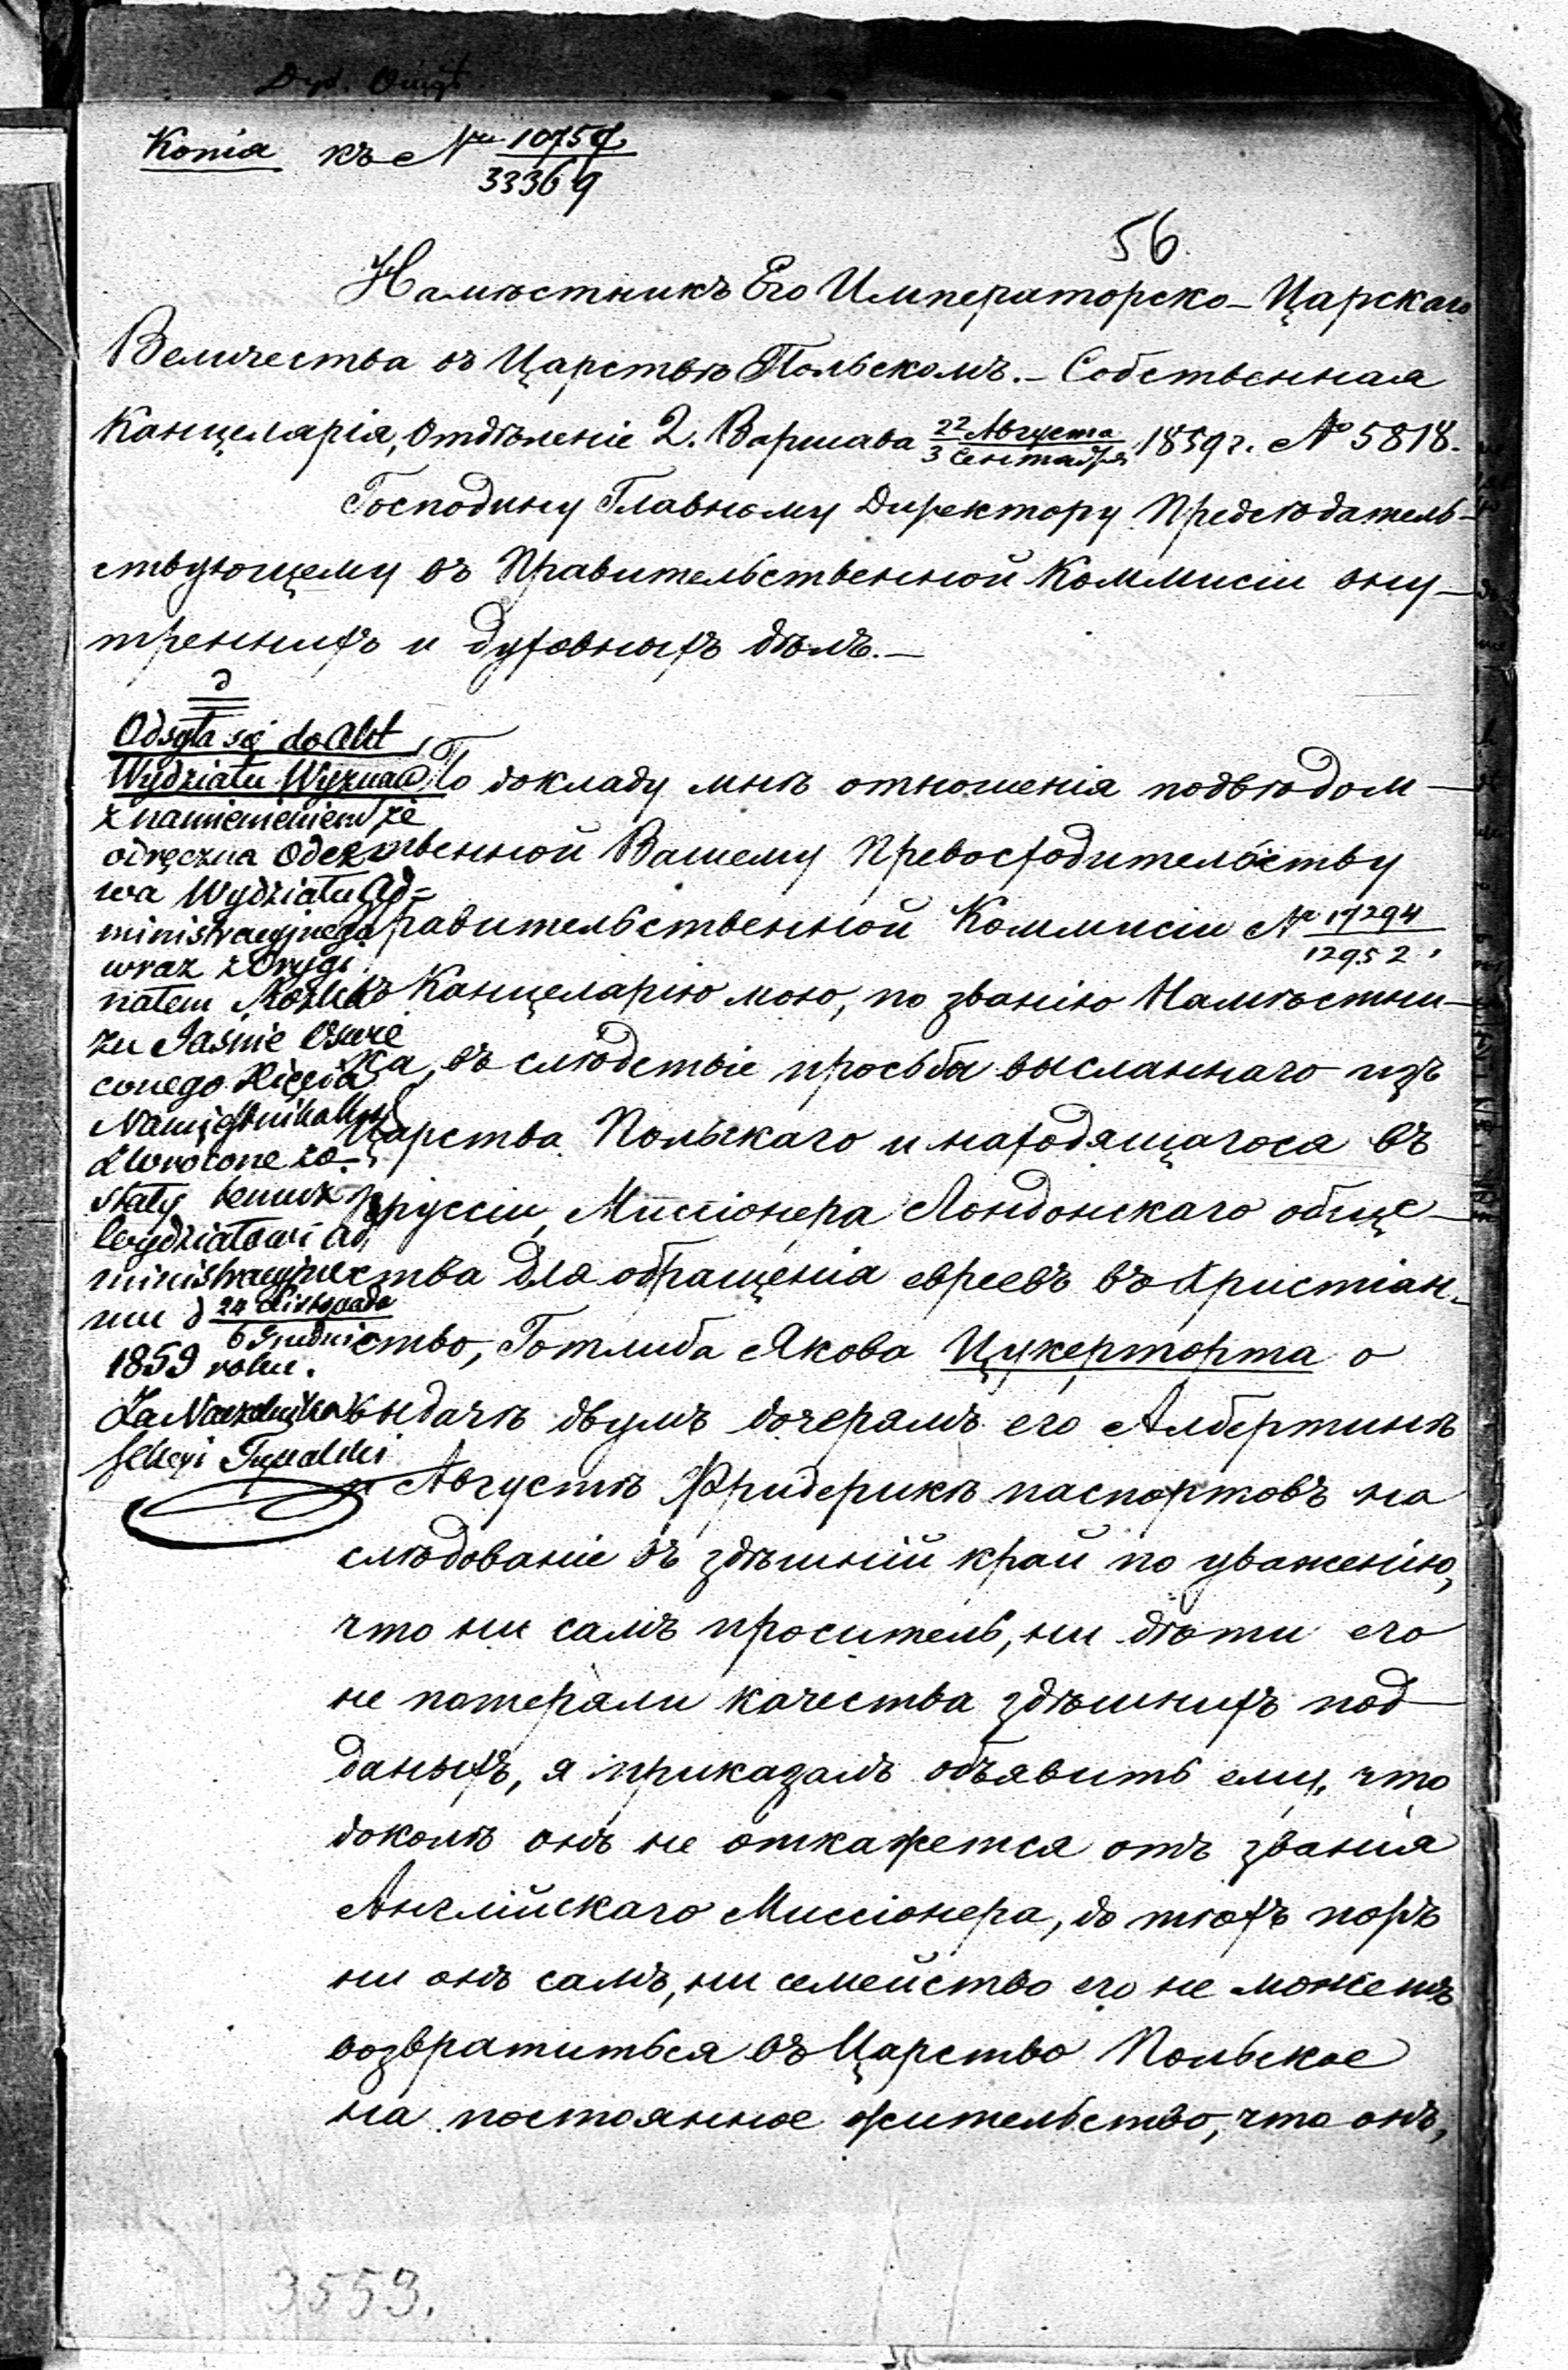 Копія къ № 10757
33369
56.
Намѣстникъ Его Императорско-Царскаго
Величества въ Царствѣ Польскомъ.- Собственная
Канцелярія, Отдѣленіе 2. Варшава 22 Августа / 3 Сентября 1859 г. № 5818.
Господину Главному Директору Предсѣдатель-
ствующему въ Правительственной Коммисіи вну-
треннихъ и духовныхъ дѣлъ.-
Odsyła się do Akt
Wydziału Wyznań
z namienieniem że
odręczna Odez
wa Wydziału Ad=
ministracyjnego
wraz z Orygi
nałem
zu Jaśnie Oświe
conego Xięcia
Namiestnika
zwrócone zo-
stały temuż
Wydziałowi Ad
ministracyjne
mu d 24 Listopada / 6 Grudnia
1859 roku.
Za Naczelnika
По докладу мнѣ отношенія подвѣдом-
ственной Вашему Превосходительству
Правительственной Коммисіи № 17294 / 12952,
въ Канцелярію мою, по званію Намѣстни-
ка, въ слѣдствіе просьбы высланнаго изъ
Царства Польскаго и находящагося въ
Пруссіи, Миссіонера Лондонскаго обще-
ства для обращенія евреевъ въ Христіан-
ство, Готлиба Якова Цукерторта о
выдачѣ двумъ дочерямъ его Албертинѣ
и Августѣ Фридерикѣ паспортовъ на
слѣдованіе въ здѣшній край по уваженію,
что ни самъ проситель, ни дѣти его
не потеряли качества здѣшнихъ под-
даныхъ, я приказалъ объявить ему, что
доколѣ онъ не откажется отъ званія
Англійскаго Миссіонера, до тѣхъ поръ
ни онъ самъ, ни семейство его не можетъ
возвратиться въ Царство Польское
на постоянное жительство, что онъ,
3553.